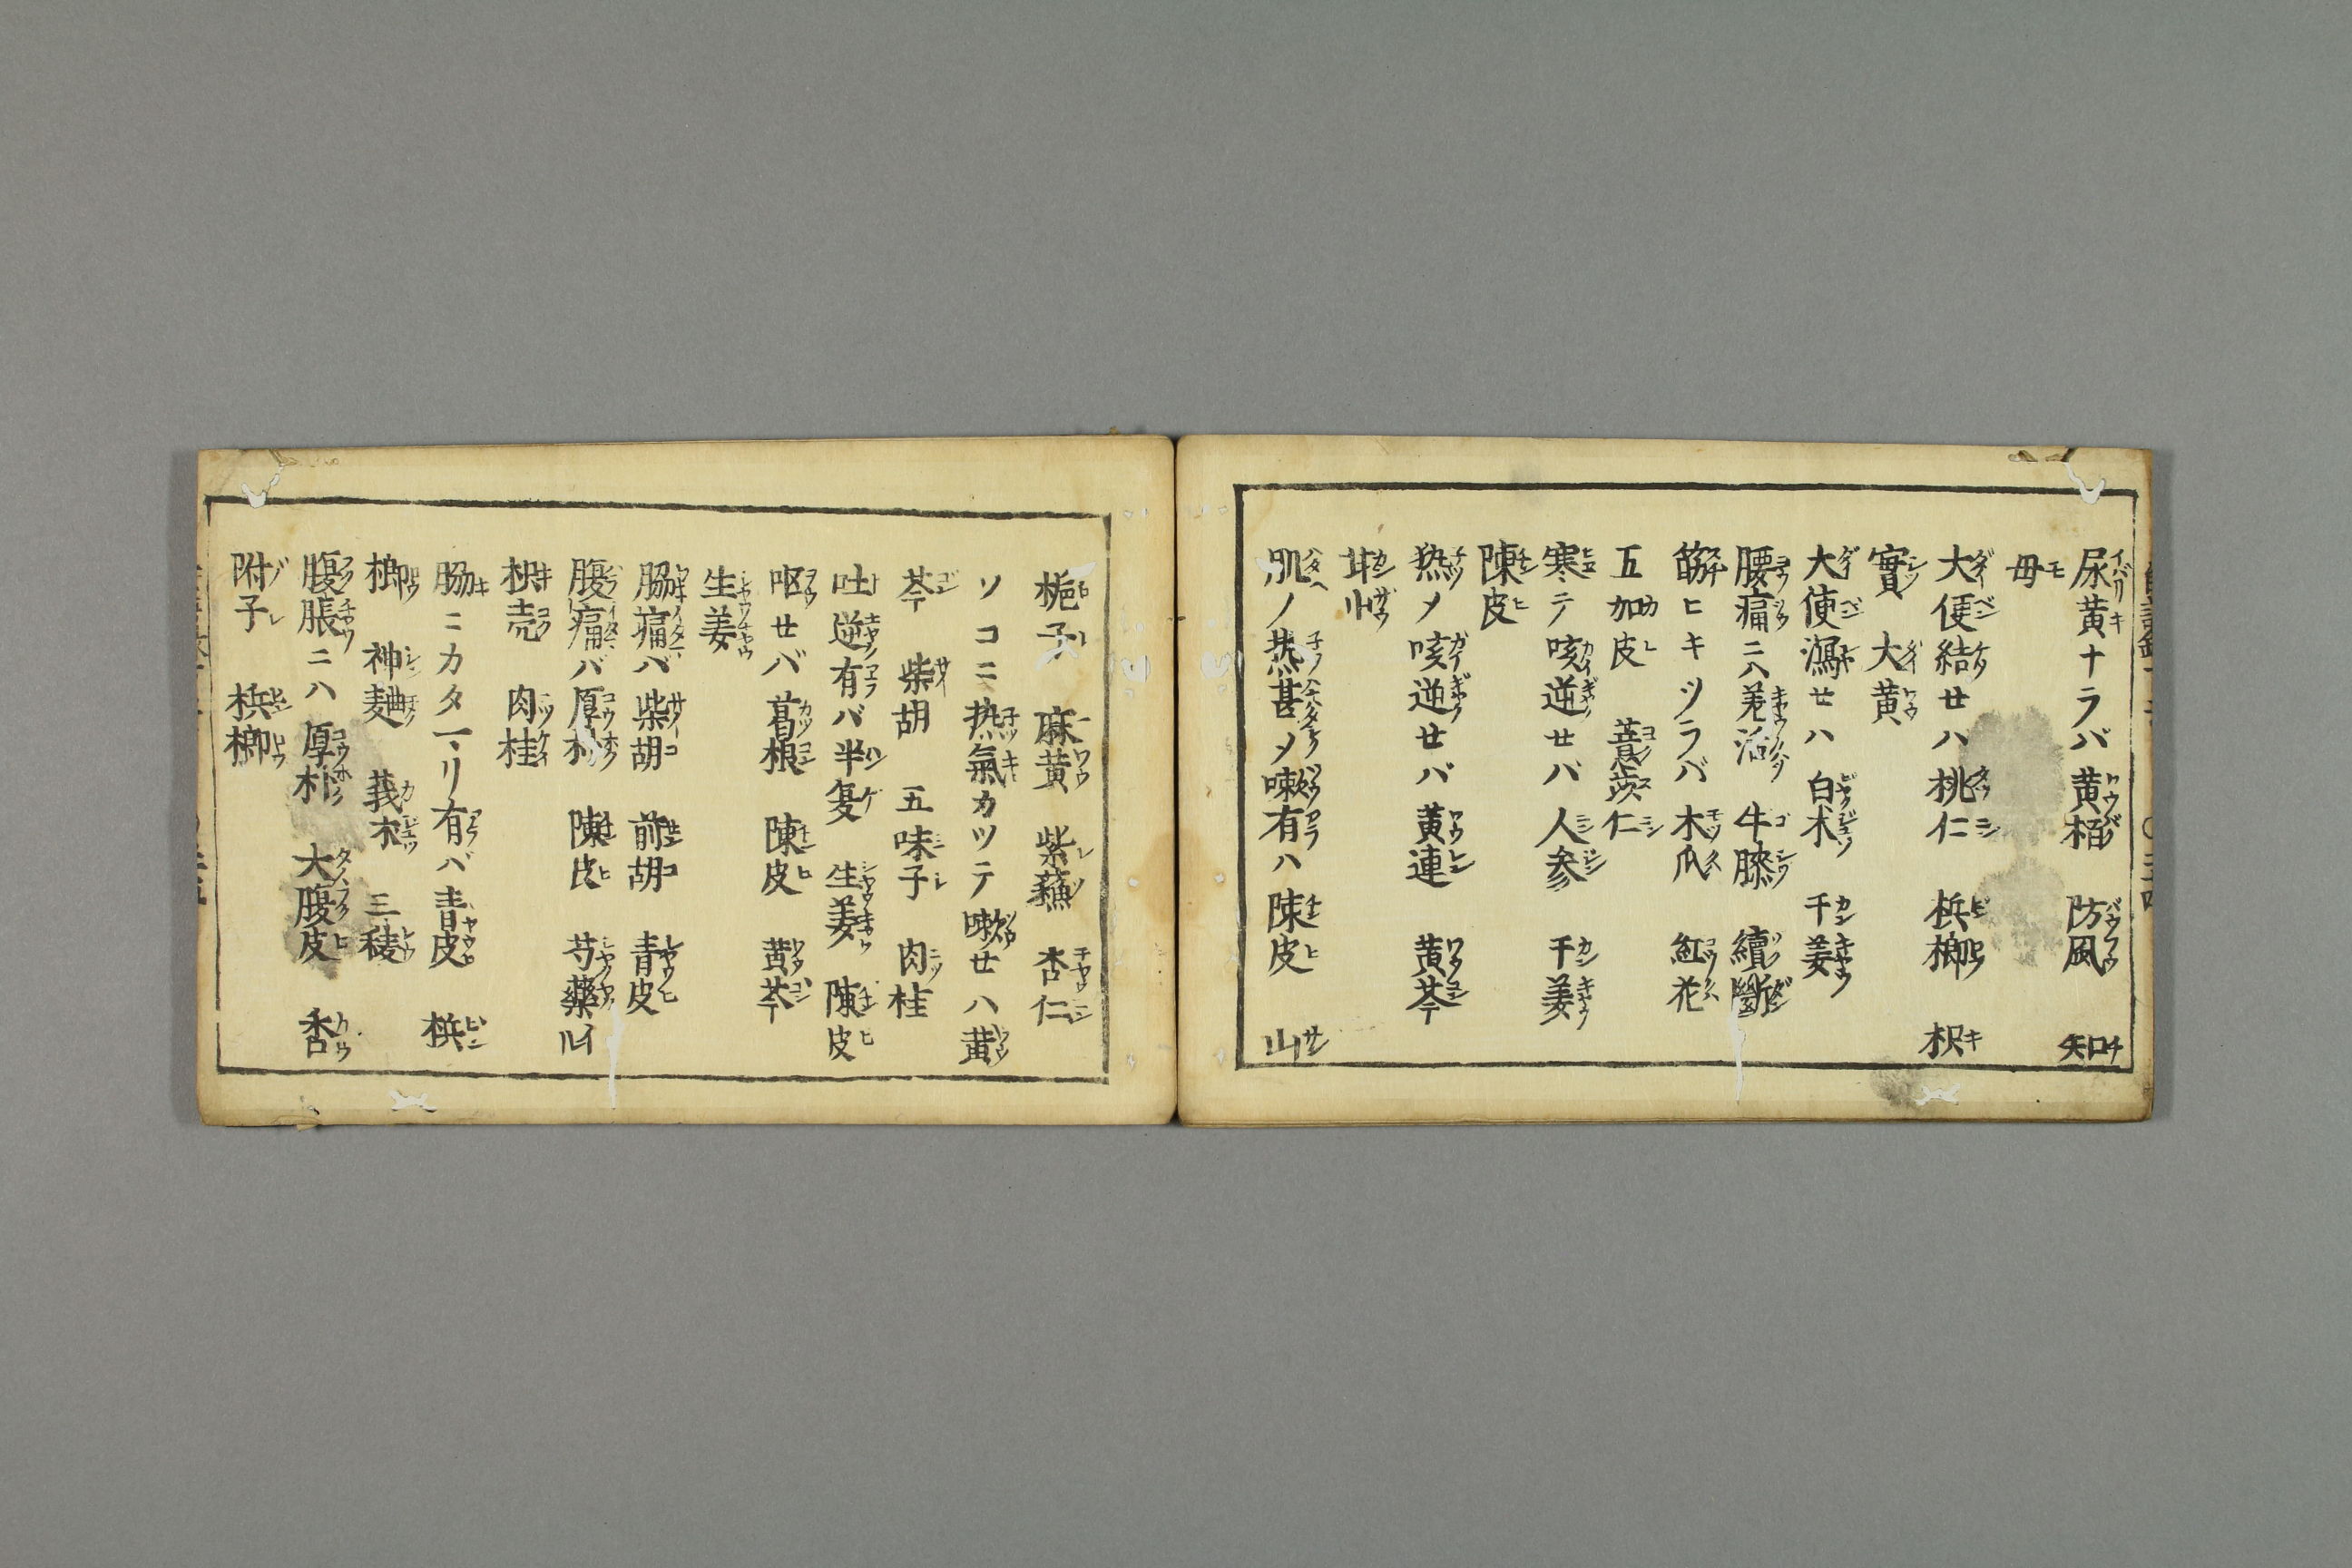 尿黄ナラバ 黄栢 防風 知
母
大便結せハ 桃仁 梹榔 枳
實 大黄
大便瀉せハ 白朮 干姜
腰痛ニハ羌活 牛膝 續斷
筋ヒキツラバ 木瓜 紅花
五加皮 薏苡仁
寒テ咳逆せバ 人参 干姜
陳皮
熱メ咳逆せバ 黄連 黄芩
肌ノ熱甚メ嗽有ハ 陳皮 山
梔子 麻黄 紫蘓 杏仁
ソコニ热氣カツテ嗽せハ黄
芩 柴胡 五味子 肉桂
吐逆有バ半夏 生姜 陳皮
呕せバ葛根 陳皮 黄芩
生姜
脇痛バ柴胡 前胡 青皮
腹痛バ厚朴 陳皮 芍藥
枳壳 肉桂
脇ニカタマリ有バ青皮 梹
榔 神麯 莪朮 三稜
腹脹ニハ 厚朴 大腹皮 香
附子 梹榔